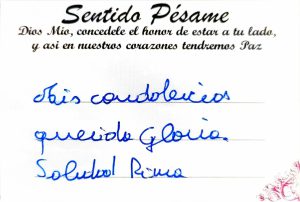 Sentido Pésame
Dios Mio, concedele el honor de estar a tu lado,
y asi en nuestros corazones tendremos Paz
Mis condolencias
querida Gloria.
Soledad Rima